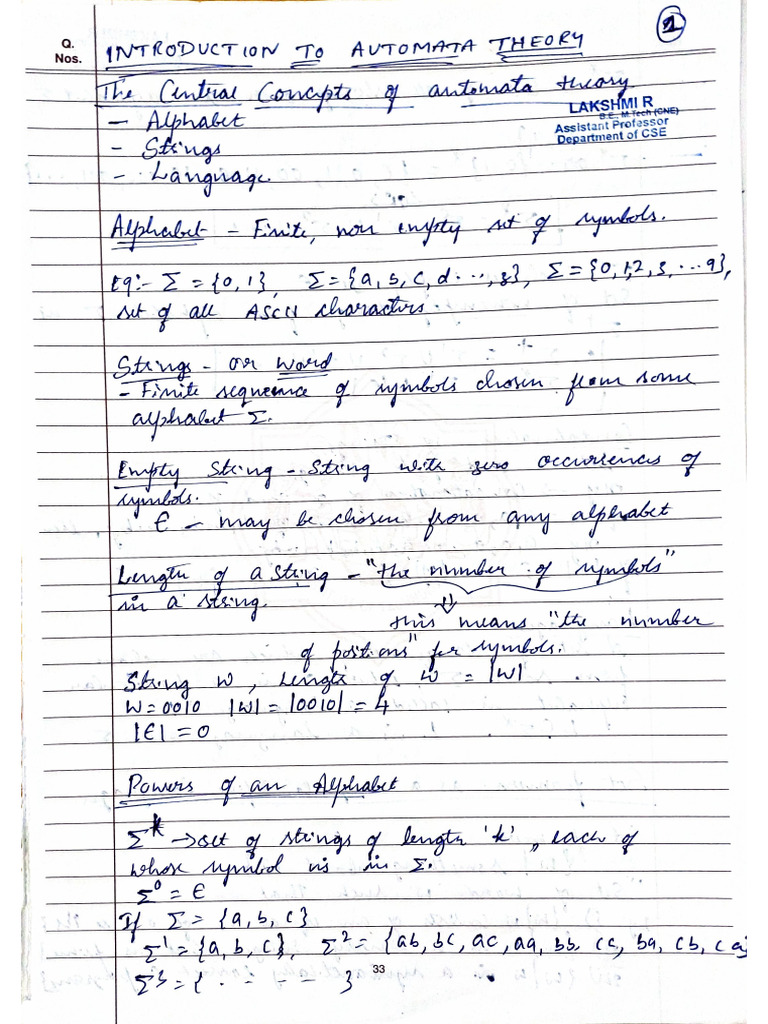 1
Q. Nos.
INTRODUCTION TO AUTOMATA THEORY
The Central Concepts of automata theory
LAKSHMI R
B.E., M.Tech (CNE)
Assistant Professor
Department of CSE
- Alphabet
- Strings
- Language
Alphabet - Finite, non empty set of symbols.
Eg:- Σ = {0, 1}, Σ = {a, b, c, d ..., z}, Σ = {0, 1, 2, 3, ... 9},
set of all ASCII characters.
Strings - or word
- Finite sequence of symbols chosen from some
alphabet Σ.
Empty String - String with zero occurrences of
symbols.
Є - may be chosen from any alphabet
Length of a string - "the number of symbols"
in a string.
⇓
this means "the number
of positions" for symbols.
String w, Length of w = |w|
W = 0010 |W| = |0010| = 4
|Є| = 0
Powers of an Alphabet
Σ^k → set of strings of length 'k', each of
whose symbol is in Σ.
Σ⁰ = Є
If Σ = {a, b, c}
Σ¹ = {a, b, c}, Σ² = {ab, bc, ac, aa, bb, cc, ba, cb, ca}
Σ³ = { . - - - }
33